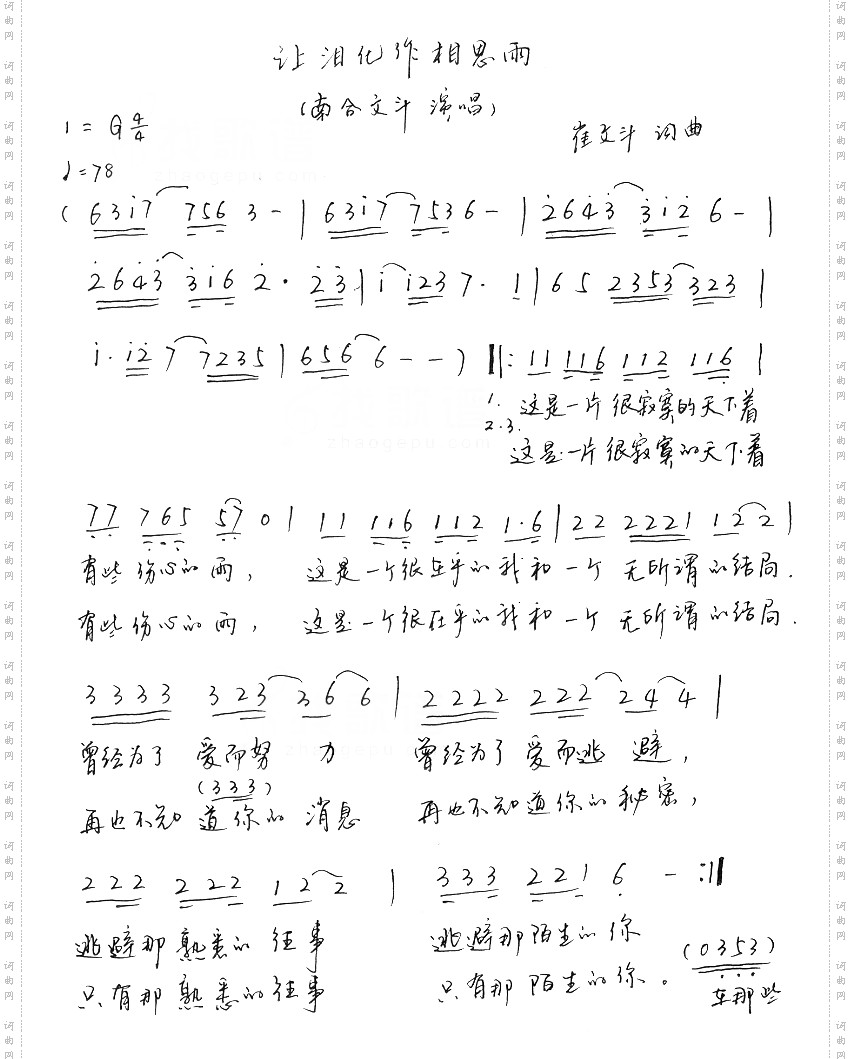 让泪化作相思雨
(南合文斗 演唱)
1 = G 4/4
崔文斗 词曲
♩=78
( 6 3 i 7 7 5 6 3 - | 6 3 i 7 7 5 3 6 - | 2 6 4 3 3 i 2 6 - |
2 6 4 3 3 i 6 2 · 2 3 | i i i 2 3 7 · 1 | 6 5 2 3 5 3 3 2 3 |
i · i 2 7 7 2 3 5 | 6 5 6 6 - - ) ‖: 1 1 1 1 6 1 1 2 1 1 6 |
1. 这是一片很寂寞的天下着
2.3. 这是一片很寂寞的天下着
7 7 7 6 5 5 7 0 | 1 1 1 1 6 1 1 2 1 · 6 | 2 2 2 2 2 1 1 2 2 |
有些伤心的雨， 这是一个很在乎的我和一个 无所谓的结局.
有些伤心的雨， 这是一个很在乎的我和一个 无所谓的结局.
3 3 3 3 3 2 3 3 6 6 | 2 2 2 2 2 2 2 2 4 4 |
曾经为了 爱而努 力 曾经为了 爱而逃 避，
(3 3 3)
再也不知 道你的 消息 再也不知道你的秘密，
2 2 2 2 2 2 1 2 2 | 3 3 3 2 2 1 6 - :‖
逃避那 熟悉的 往事 逃避那陌生的你
(0 3 5 3)
只有那 熟悉的往事 只有那 陌生的你。 在那些